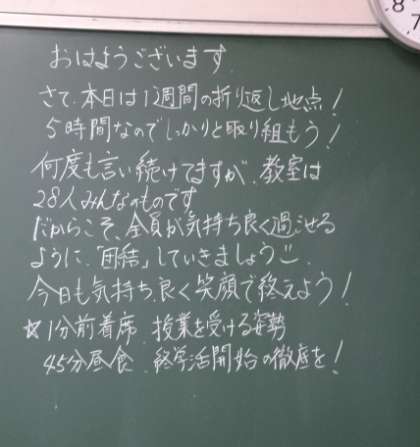 おはようございます
さて、本日は1週間の折り返し地点！
5時間なのでしっかりと取り組もう！
何度も言い続けてますが、教室は
28人みんなのものです
だからこそ、全員が気持ち良く過ごせる
ように、「団結」していきましょう
今日も気持ち良く笑顔で終えよう！
☆1分前着席 授業を受ける姿勢
45分昼食 終学活開始の徹底を！
8
7